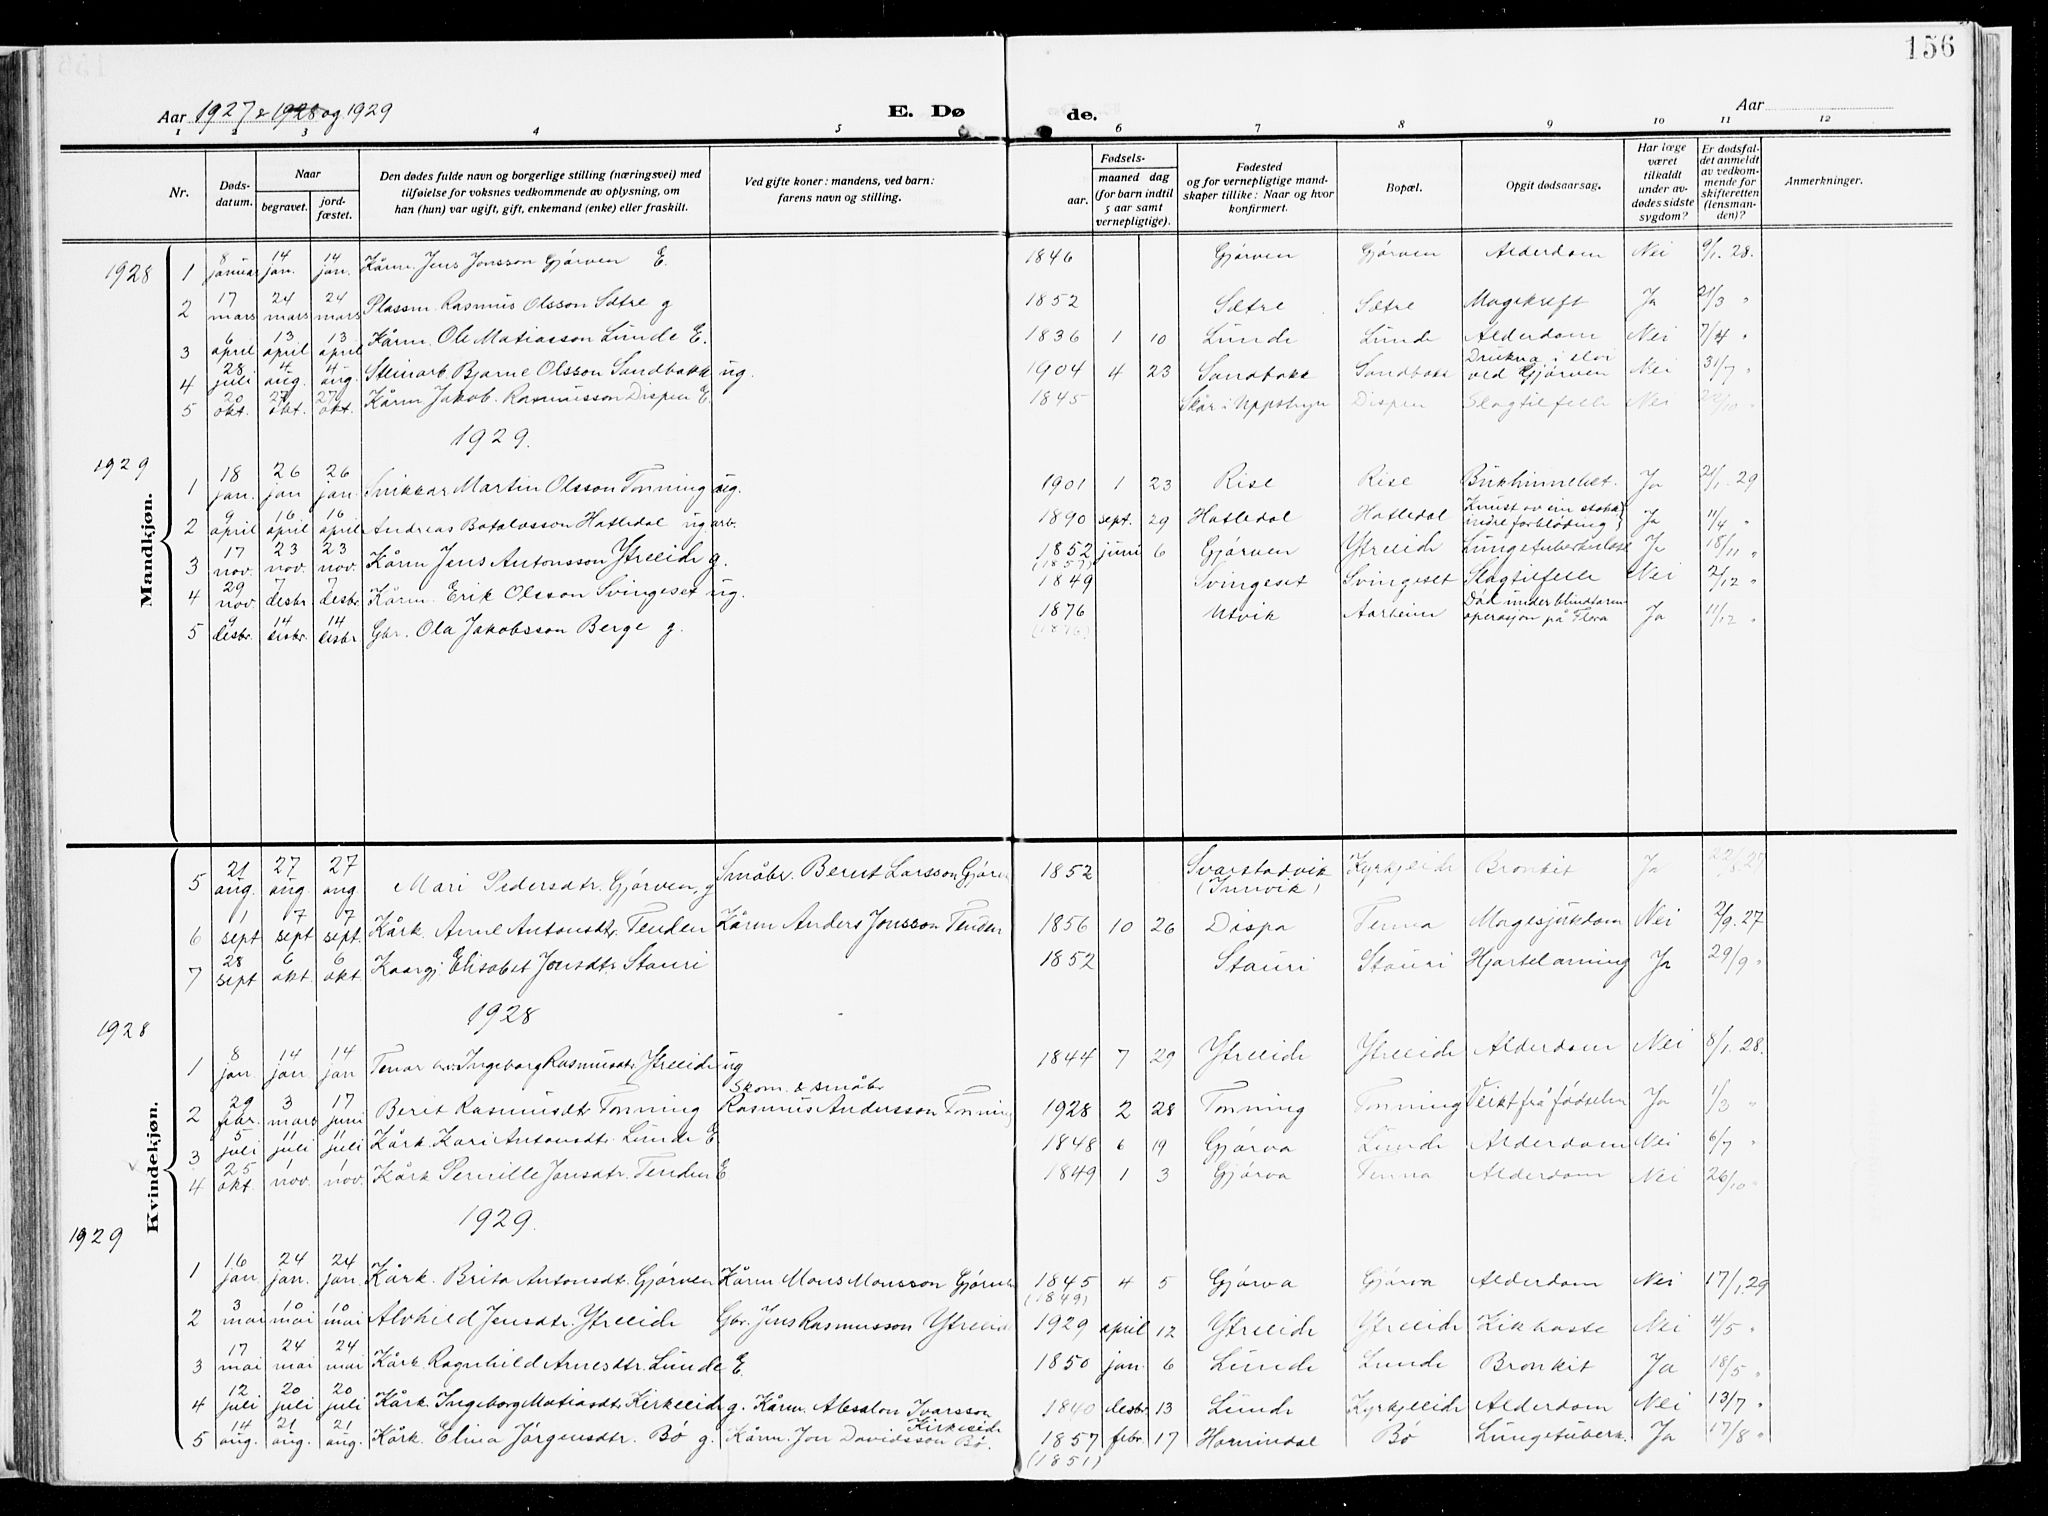 156
Aar 1927 & 1928 og 1929 E. Døde. Aar
1 2 3 4 5 6 7 8 9 10 11 12
Nr. Dødsdatum. Naar begravet. jordfæstet. Den dødes fulde navn og borgerlige stilling (næringsvei) med tilføielse for voksnes vedkommende av oplysning, om han (hun) var ugift, gift, enkemand (enke) eller fraskilt. Ved gifte koner: mandens, ved barn: farens navn og stilling. Fødsels- aar. maaned dag (for barn indtil 5 aar samt vernepligtige). Fødested og for vernepligtige mandskaper tillike: Naar og hvor konfirmert. Bopæl. Opgit dødsaarsag. Har læge været tilkaldt under avdødes sidste sygdom? Er dødsfaldet anmeldt av vedkommende for skifteretten (lensmanden)? Anmerkninger.
Mandkjøn.
1928 1 8 januar 14 jan. 14 jan. Kårm. Jens Jonsson Gjørven E. 1846 Gjørven Gjørven Alderdom Nei 9/1. 28.
2 17 mars 24 mars 24 mars Plassm. Rasmus Olsson Sætre g 1852 Sætre Sætre Magekreft Ja 21/3 "
3 6 april 13 april 13 april Kårm. Ole Matiasson Lunde E. 1836 1 10 Lunde Lunde Alderdom Nei 7/4 "
4 28 juli 4 aug. 4 aug. Steinarb. Bjarne Olsson Sandbakk ug. 1904 4 23 Sandbakk Sandbakk Drukna i elvi ved Gjørven Nei 31/7 "
5 20 okt. 27 okt. 27 okt. Kårm. Jakob Rasmusson Dispen E 1845 Skår i Uppstryn Dispen Slagtilfelle Nei
1929.
1929 1 18 jan. 26 jan 26 jan. Snikkar Martin Olsson Tonning ug. 1901 1 23 Rise Rise Bukhinnebet. Ja 21/1. 29
2 9 april 16 april 16 april Andreas Botolvsson Hatledal ug arb. 1890 sept. 29 Hatledal Hatledal Knust av ein stokk indre forbløding Ja 11/4 "
3 17 nov. 23 nov. 23 nov. Kårm Jens Antonsson Ytreeide g. 1852 (1857) juni 6 Gjørven Ytreeide Lungetuberkulose Ja 18/11 "
4 29 nov. 7 desbr. 7 desbr. Kårm. Erik Olsson Svingeset ug. 1849 Svingeset Svingeset Slagtilfelle Nei 2/12 "
5 9 desbr. 14 desbr. 14 desbr Gbr. Ola Jakobsson Berge g. 1876 (1876) Utvik Aarheim Død under blindtarmoperasjon på Flora Ja 11/12 "
Kvindekjøn.
5 21 aug. 27 aug. 27 aug Mari Pedersdtr. Gjørven, g Småbr. Bernt Larsson Gjørven 1852 Svarstadvik (Innvik) Kyrkjeeide Bronkit Ja 22/8 27
6 1 sept 7 sept 7 sept. Kårk. Anne Antonsdtr. Tenden Kårm Anders Jonsson Tenden 1856 10 26 Dispa Tenna Magesjukdom Nei 2/9. 27
7 28 sept 6 okt. 6 okt Kaargj Elisabet Jonsdtr Stauri 1852 Stauri Stauri Hjartelaming Ja 29/9 "
1928
1928 1 8 jan. 14 jan. 14 jan Ingeborg Rasmusdtr. Ytreeide ug 1844 7 29 Ytreeide Ytreeide Alderdom Nei 8/1. 28.
2 29 febr. 3 mars 17 juni Berit Rasmusdtr Tonning Skom. & småbr Rasmus Andersson Tonning 1928 2 28 Tonning Tonning Veikt frå fødselen Ja 1/3 "
3 5 juli 11 juli 11 juli Kårk. Kari Antonsdtr. Lunde E 1848 6 19 Gjørva Lunde Alderdom Nei 6/7 "
4 25 okt. 1 nov. 1 nov. Kårk Pernille Jonsdtr. Tenden E 1849 1 3 Gjørva Tenna Alderdom Nei 26/10 "
1929.
1929 1 16 jan 24 jan. 24 jan. Kårk. Brita Antonsdtr. Gjørven Kårm Mons Monsson Gjørven 1845 (1849) 4 5 Gjørva Gjørva Alderdom Nei 17/1. 29
2 3 mai 10 mai 10 mai Alvhild Jensdtr. Ytreeide Gbr. Jens Rasmusson Ytreeide 1929 april 12 Ytreeide Ytreeide Kikhoste Nei 4/5 "
3 17 mai 24 mai 24 mai Kårk. Ragnhild Arnesdtr. Lunde E. 1850 jan. 6 Lunde Lunde Bronkit Ja 18/5 "
4 12 juli 20 juli 20 juli Kårk. Ingeborg Matiasdtr. Kirkeeide g. Kårm. Absalon Ivarsson Kirkeeide 1840 desbr 13 Lunde Kyrkjeeide Alderdom Nei 13/7 "
5 14 aug. 21 aug. 21 aug. Kårk. Elina Jørgensdtr. Bø g. Kårm. Jon Davidsson Bø. 1857 (1851) febr. 17 Hornindal Bø Lungetuberk. Ja 17/8 "